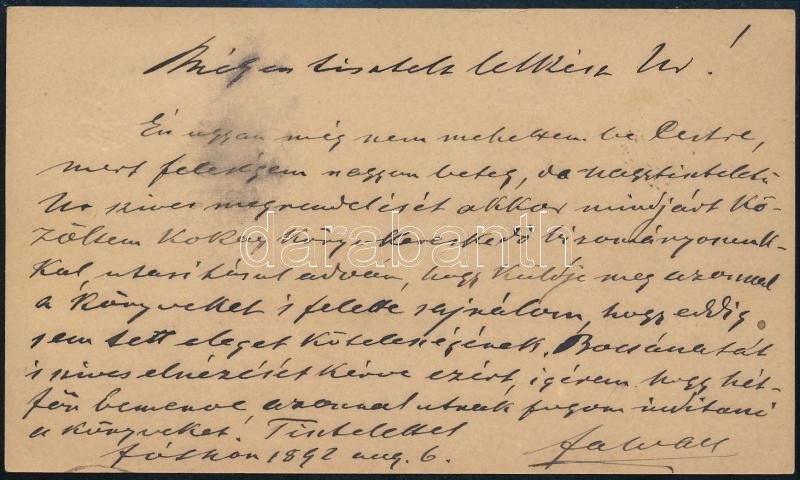 Mélyen tisztelt lelkész Ur!
Én ugyan még nem mehettem be Pestre,
mert feleségem nagyon beteg, de nagytiszteletü
Ur szives megrendelését akkor mindjárt kö-
zöltem Kokay Könyvkereskedő bizományosunk-
kal, utasitásul adván, hogy küldje meg azonnal
a könyveket is felette sajnálom, hogy eddig
sem tett eleget kötelességének. Bocsánatát
is szives elnézését kérve ezért, igérem hogy hét-
főn bemenve azonnal utnak fogom inditani
a könyveket! Tisztelettel
1892 aug. 6.
darabanth